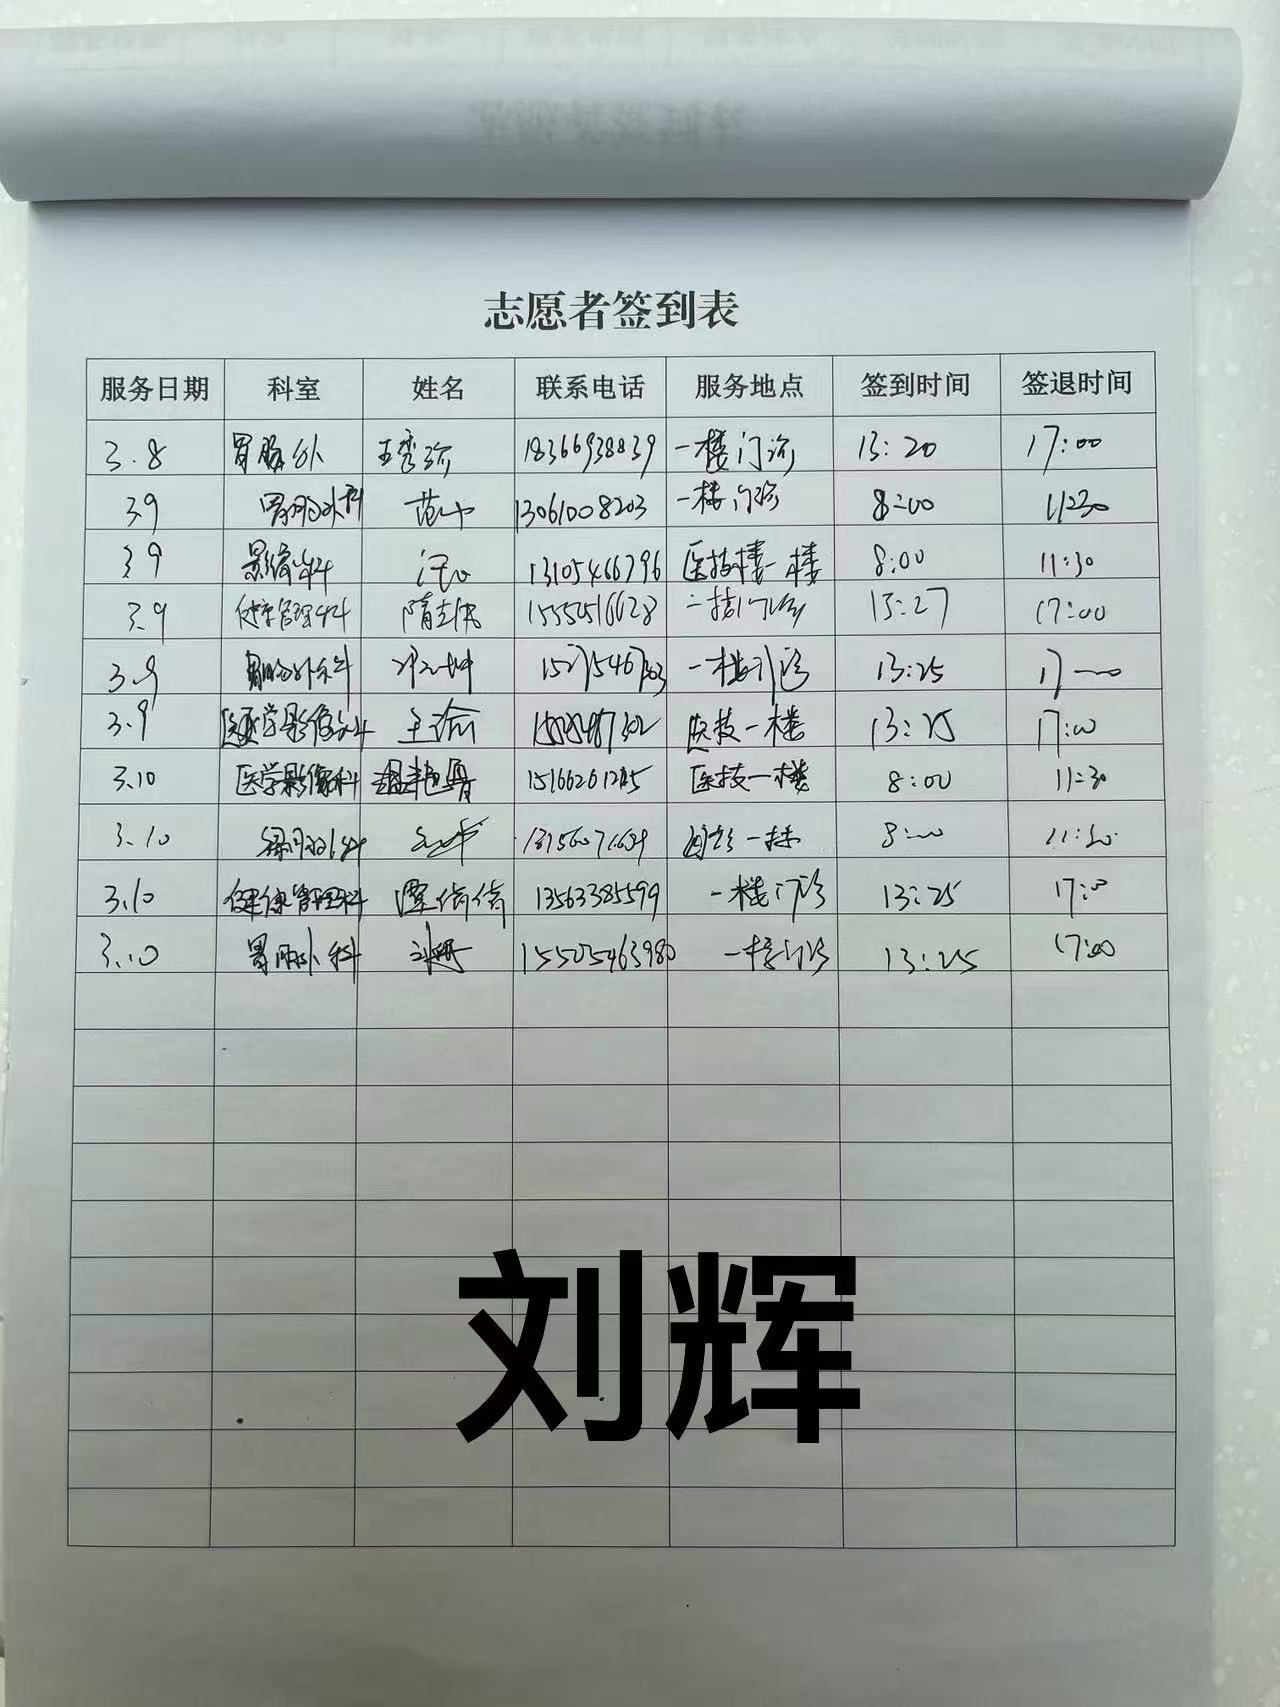 志愿者签到表
服务日期 科室 姓名 联系电话 服务地点 签到时间 签退时间
3.8 胃肠外 18366938839 一楼门诊 13:20 17:00
3.9 胃肠外科 13061008203 一楼门诊 8:00 11:30
3.9 影像科 13105466796 医技楼一楼 8:00 11:30
3.9 健康管理科 隋志伟 15550516628 13:27 17:00
3.9 胃肠外科 一楼门诊 13:25 17
3.9 医学影像科 王渝 医技一楼 13:25 17:00
3.10 医学影像科 15166261245 医技一楼 8:00 11:30
3.10 一楼 8:00 11:30
3.10 健康管理科 谭倩倩 13563385599 一楼门诊 13:25 17:0
3.10 胃肠外科 15505463980 一楼门诊 13:25 17:00
刘辉